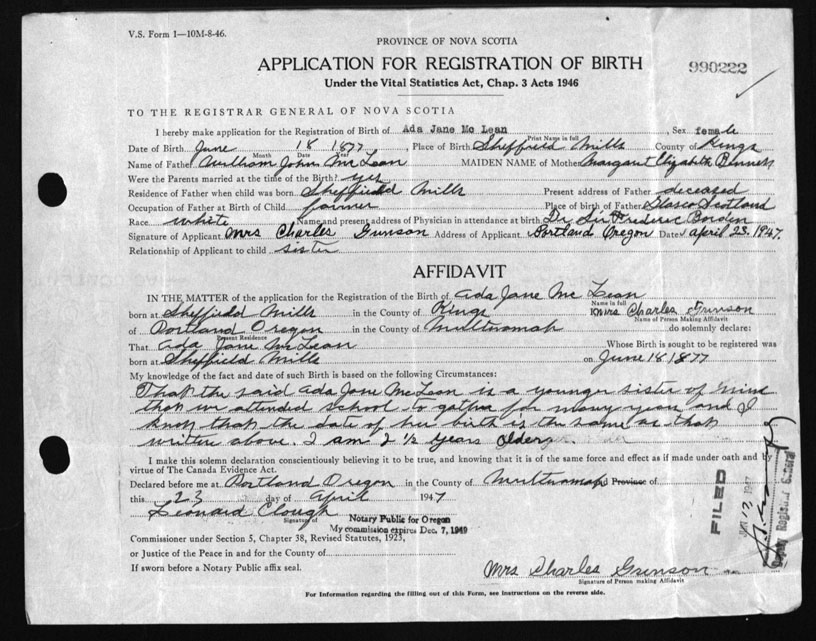 V.S. Form 1—10M-8-46.
PROVINCE OF NOVA SCOTIA
APPLICATION FOR REGISTRATION OF BIRTH
990222
Under the Vital Statistics Act, Chap. 3 Acts 1946
TO THE REGISTRAR GENERAL OF NOVA SCOTIA
I hereby make application for the Registration of Birth of Ada Jane Mc Lean, Sex female
Print Name in full
Date of Birth June 18 1877, Place of Birth Sheffield Mills County of Kings
Month Date Year
Name of Father William John McLean MAIDEN NAME of Mother Margaret Elizabeth Bennett
Were the Parents married at the time of the Birth? yes
Residence of Father when child was born Sheffield Mills Present address of Father deceased
Occupation of Father at Birth of Child farmer Place of birth of Father Glasco Scotland
Race white Name and present address of Physician in attendance at birth Dr Sir Frederic Borden
Signature of Applicant Mrs Charles Gunson Address of Applicant Portland Oregon Date April 23. 1947.
Relationship of Applicant to child sister
AFFIDAVIT
IN THE MATTER of the application for the Registration of the Birth of Ada Jane Mc Lean
Name in full
born at Sheffield Mills in the County of Kings Mrs Charles Gunson
Name of Person Making Affidavit
of Portland Oregon in the County of Multnomah do solemnly declare:
Present Residence
That Ada Jane McLean Whose Birth is sought to be registered was
born at Sheffield Mills on June 18 1877
My knowledge of the fact and date of such Birth is based on the following Circumstances:
That the said Ada Jane McLean is a younger sister of mine
that we attended school to gather for many years and I
know that the date of her birth is the same as that
written above. I am 2 ½ years older
I make this solemn declaration conscientiously believing it to be true, and knowing that it is of the same force and effect as if made under oath and by
virtue of The Canada Evidence Act.
Declared before me at Portland Oregon in the County of Multnomah Province of
this 23 day of April 1947
Leonard Clough
Signature of Notary Public for Oregon
My commission expires Dec. 7, 1949
Commissioner under Section 5, Chapter 38, Revised Statutes, 1923,
or Justice of the Peace in and for the County of
If sworn before a Notary Public affix seal.
Mrs Charles Gunson
Signature of Person making Affidavit
For Information regarding the filling out of this Form, see instructions on the reverse side.
FILED
Deputy Registrar General